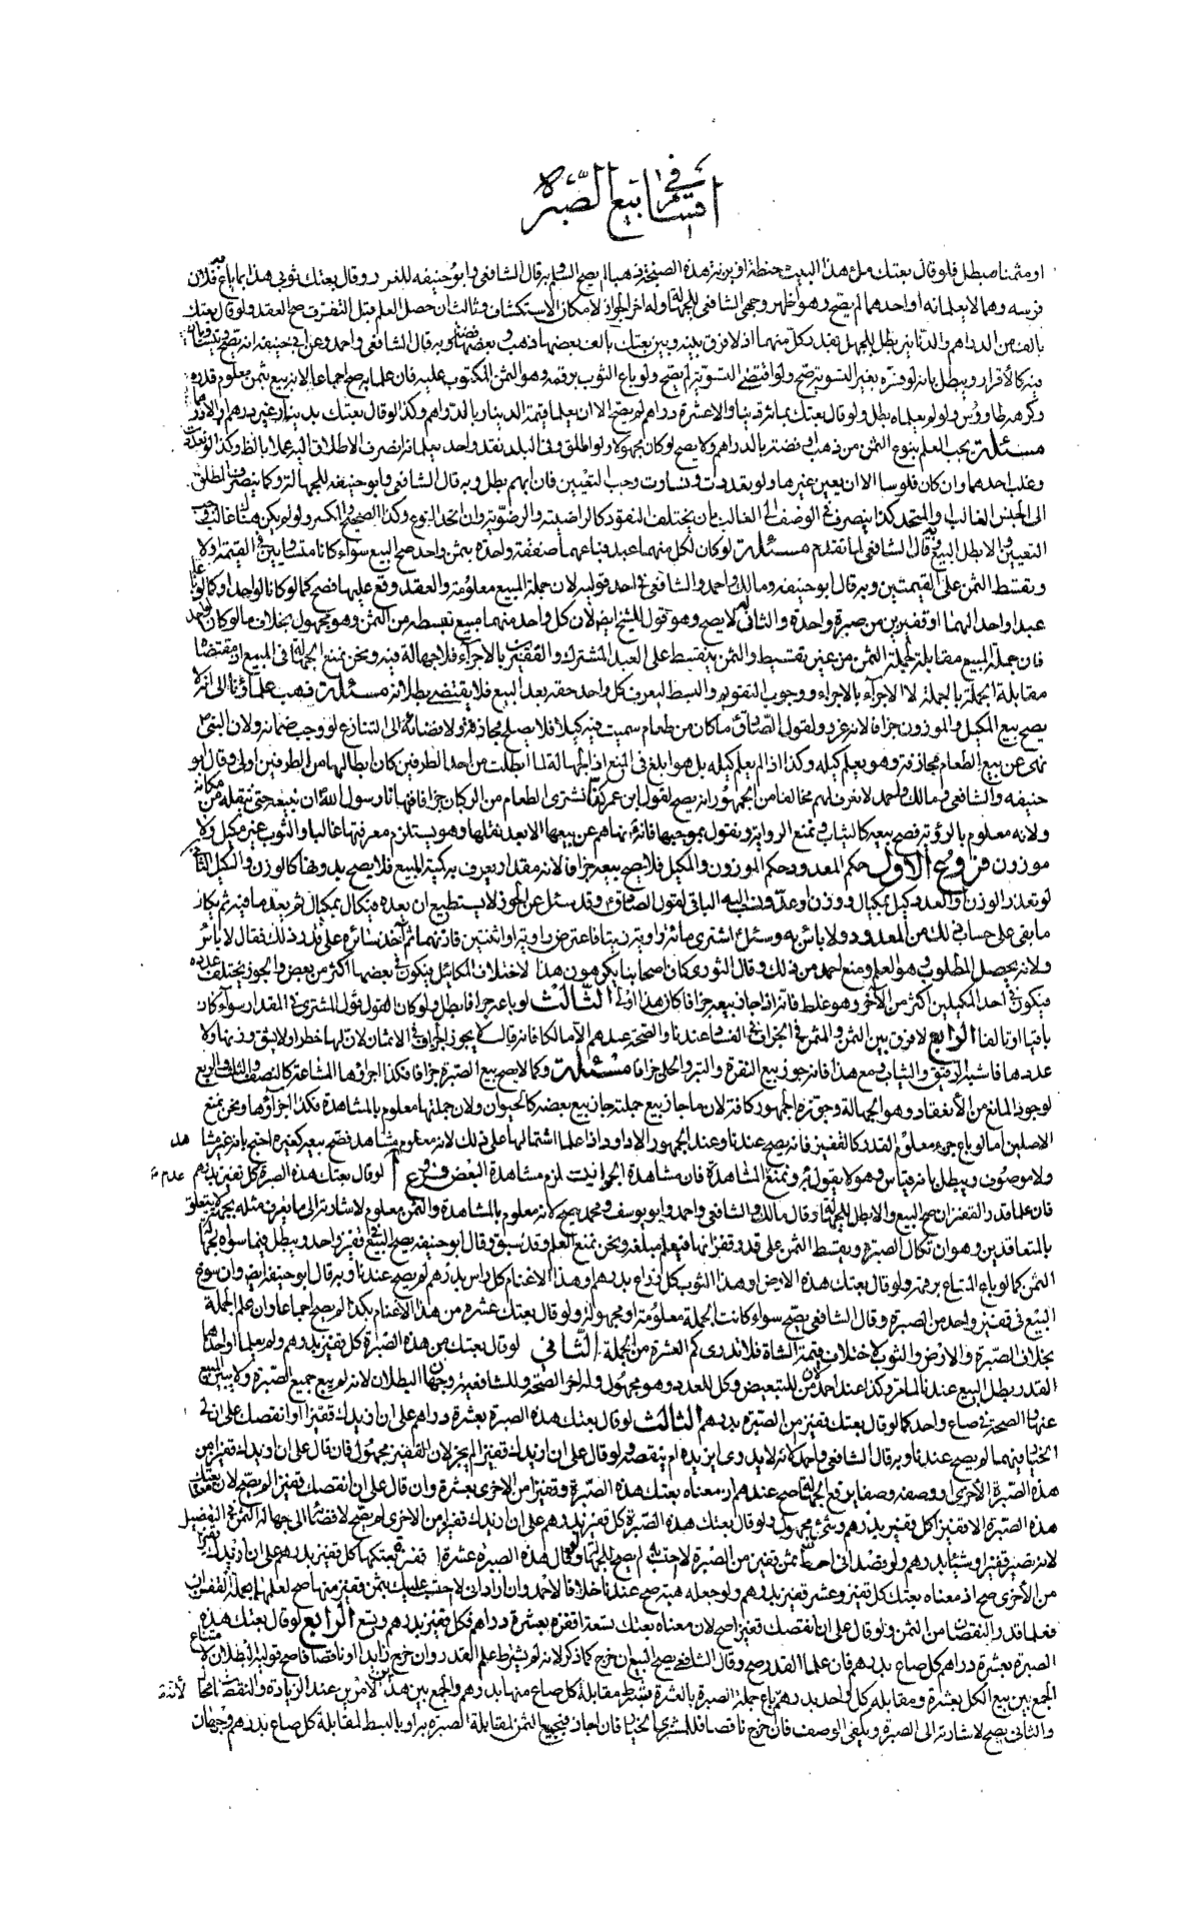 في اقسام بيع الصبرة
او مثمنا بطل فلو قال بعتك ملء هذا البيت حنطة او بزنة هذه الصنجة ذهبا لم يصح السلم وبه قال الشافعي وابو حنيفه للغرر ولو قال بعتك ثوبي هذا بما باع به فلان
فرسه وهما لا يعلمانه او احدهما لم يصح وهو اظهر وجهي الشافعي للجهالة وله اخر الجواز لامكان الاستكشاف وثالث ان حصل العلم قبل التفرق صح العقد ولو قال بعتك
بالف من الدراهم والدنانير بطل للجهل بقدر كل منهما اذ لا فرق بينه وبين بعتك بالف بعضها ذهب وبعضها فضة وبه قال الشافعي واحمد وعن ابي حنيفه انه يصح
فيه كالاقرار ويبطل بانه لو فسره بغير التسوية صح ولو اقتضى التسوية لم يصح ولو باع الثوب برقمه وهو الثمن المكتوب عليه فان علماه صح اجماعا لانه بيع بثمن معلوم قدره
وكرهه طاووس ولو لم يعلماه بطل ولو قال بعتك بمائة دينار الا عشرة دراهم لم يصح الا ان يعلما قيمة الدينار بالدراهم وكذا لو قال بعتك بدينار غير درهم
مسئلة يجب العلم بنوع الثمن من ذهب او فضة بالدراهم ولا يصح لو كان مجهولا ولو اطلق وفي البلد نقد واحد يعلمانه انصرف الاطلاق اليه عملا بالظ وكذا لو تعددت
وغلب احدهما وان كان فلوسا الا ان يعين غيرها ولو تعددت وتساوت وجب التعيين فان ابهم بطل وبه قال الشافعي وابو حنيفه للجهالة وكما ينصرف المطلق
الى الجنس الغالب والمتحد كذا ينصرف في الوصف الى الغالب بان يختلف النقود كالراضية والرضوية وان اتحد النوع وكذا الصحيح والمكسر ولو لم يكن هناك غالب وجب
التعيين والا بطل البيع وبه قال الشافعي لما تقدم مسئلة لو كان لكل منهما عبد فباعهما صفقة واحدة بثمن واحد صح البيع سواء كانا متساويين في القيمة او لا
ويقسط الثمن على القيمتين وبه قال ابو حنيفه ومالك واحمد والشافعي في احد قوليه لان جملة المبيع معلومة والعقد وقع عليها فصح كما لو كانا لواحد وكما لو باعا
عبدا واحدا لهما او قفيزين من صبرة واحدة والثاني له لا يصح وهو قول للشيخ ايض لان كل واحد منهما مبيع بقسطه من الثمن وهو مجهول بخلاف ما لو كانا لواحد
فان جملة المبيع مقابلة لجملة الثمن من غير تقسيط والثمن يتقسط على العبد المشترك والقفيزين بالاجزاء فلا جهالة فيه ونحن نمنع الجهالة في المبيع اذ مقتضاه
مقابلة الجملة بالجملة لا الاجزاء بالاجزاء ووجوب التقويم والبسط ليعرف كل واحد حقه بعد البيع فلا يقتضى بطلانه مسئلة ذهب علماؤنا الى انه لا
يصح بيع المكيل والموزون جزافا لانه غرر ولقول الصادق ما كان من طعام سميت فيه كيلا فلا يصلح مجازفة ولافضائه الى التنازع لو وجب ضمانه ولان النبي ص
نهى عن بيع الطعام مجازفة وهو يعلم كيله وكذا اذا لم يعلم كيله بل هو ابلغ في المنع اذ الجهالة لما ابطلت من احد الطرفين كان ابطالها من الطرفين اولى وقال ابو
حنيفه والشافعي ومالك واحمد لا نعرف لهم مخالفا من الجمهور انه يصح لقول ابن عمر كنا نشترى الطعام من الركبان جزافا فنهانا رسول الله ان نبيعه حتى ننقله من مكانه
ولانه معلوم بالرؤية فصح بيعه كالثياب ونمنع الرواية ونقول بموجبها فانه نهاهم عن بيعها الا بعد نقلها وهو يستلزم معرفتها غالبا والثوب غير مكيل ولا
موزون فروع الاول حكم المعدود حكم الموزون والمكيل فلا يصح بيعه جزافا لانه مقدار يعرف به كمية المبيع فلا يصح بدونها كالوزن والكيل الثاني
لو تعذر الوزن او العدد كيل بمكيال ووزن او عد ونسب اليه الباقي لقول الصادق وقد سئل عن الجوز لا يستطيع ان يعده فيكال بمكيال ثم يعد ما فيه ثم يكال
ما بقي على حساب ذلك من العدد ولا باس به وسئل اشترى مائة راوية زيتا فاعترض راوية او اثنتين فاتزنهما ثم آخذ سائره على قدر ذلك فقال لا باس
ولانه يحصل المطلوب وهو العلم ومنع احمد من ذلك وقال الثوري كان اصحابنا يكرهون هذا لاختلاف المكاييل فيكون في بعضها اكثر من بعض والجوز يختلف عدده
فيكون في احد المكيلين اكثر من الآخر وهو غلط فانه اذا جاز بيعه جزافا كان هذا اولى الثالث لو باعه جزافا بطل ولو كان القول قول المشترى في المقدار سواء كان
باقيا او تالفا الرابع لا فرق بين الثمن والمثمن في الجزاف في الفساد عندنا والصحة عندهم الا مالكا فانه قال لا يجوز الجزاف في الاثمان لان لها خطرا ولا يشق وزنها ولا
عددها فاشبه الرقيق والثياب ومع هذا فانه جوز بيع النقرة والتبر والحلي جزافا مسئلة وكما لا يصح بيع الصبرة جزافا فكذا اجزاؤها المشاعة كالنصف والثلث والربع
لوجود المانع من الانعقاد وهو الجهالة وجوزه الجمهور كافة لان ما جاز بيع جملته جاز بيع بعضه كالحيوان ولان جملتها معلوم بالمشاهدة فكذا اجزاؤها ونحن نمنع
الاصلين اما لو باع جزء معلوم القدر كالقفيز فانه يصح عندنا وعند الجمهور الا داود اذا علما اشتمالها على ذلك لانه معلوم مشاهد فصح بيعه كغيره احتج بانه غير مشاهد
ولا موصوف ويبطل بانه قياس وهو لا يقول به ونمنع المشاهدة فان مشاهدة الجملة لزم مشاهدة البعض فروع أ لو قال بعتك هذه الصبرة كل قفيز بدرهم
فان علما قدر القفزان صح البيع والا بطل للجهالة وقال مالك والشافعي واحمد وابو يوسف ومحمد يصح لانه معلوم بالمشاهدة والثمن معلوم لاشارته الى ما يعرف مثله بجهة لا يتعلق
بالمتعاقدين وهو ان تكال الصبرة ويقسط الثمن على قدر قفزانها فيعلم مبلغه ونحن نمنع العلم وقد سبق وقال ابو حنيفه يصح البيع في قفيز واحد ويبطل فيما سواه لجهالة
الثمن كما لو باع المتاع برقمه ولو قال بعتك هذه الارض او هذا الثوب كل ذراع بدرهم او هذا الاغنام كل راس بدرهم لم يصح عندنا وبه قال ابو حنيفه ايض وان سوغ
البيع في قفيز واحد من الصبرة وقال الشافعي يصح سواء كانت الجملة معلومة او مجهولة ولو قال بعتك عشرة من هذا الاغنام بكذا لم يصح اجماعا وان علم الجملة
بخلاف الصبرة والارض والثوب لاختلاف قيمة الشاة فلا تدرى كم العشرة من الجملة الثاني لو قال بعتك من هذه الصبرة كل قفيز بدرهم ولم يعلما او احدهما
القدر بطل البيع عندنا لما مر وكذا عند احمد لان من للتبعيض وكل للعدد وهو مجهول وله اخر الصحة وللشافعية وجهان البطلان لانه لم يبع جميع الصبرة ولا بين المبيع
عنها والصحة في صاع واحد كما لو قال بعتك قفيز من الصبرة بدرهم الثالث لو قال بعتك هذه الصبرة بعشرة دراهم على ان ازيدك قفيزا او انقصك على ان لي
الخيار فيهما لم يصح عندنا وبه قال الشافعي واحمد لانه لا يدرى ايزيده ام ينقصه ولو قال على ان ازيدك قفيزا لم يجز لان القفيز مجهول فان قال على ان ازيدك قفيزا من
هذه الصبرة الاخرى او وصفه وصفا يرفع الجهالة صح عندهم اذ معناه بعتك هذه الصبرة وقفيزا من الاخرى بعشرة وان قال على ان انقصك قفيزا لم يصح لان معناه بعتك
هذه الصبرة الا قفيزا كل قفيز بدرهم وشئ مجهول ولو قال بعتك هذه الصبرة كل قفيز بدرهم على ان ازيدك قفيزا من الاخرى لم يصح لافضائه الى جهالة الثمن في التفصيل
لانه يصير قفيزا وشيئا بدرهم ولو قصد اني احط ثمن قفيز من الصبرة لا احتسب به لم يصح للجهالة ولو قال هذه الصبرة عشرة اقفزة بعتكها كل قفيز بدرهم على ان ازيدك قفيزا
من الاخرى صح اذ معناه بعتك كل قفيز وعشر قفيز بدرهم ولو جعله هبة صح عندنا خلافا لاحمد وان اراد اني لا احتسب عليك بثمن قفيز منها صح لعلمهما بجملة القفزان
فعلما قدر النقصان من الثمن ولو قال على ان انقصك قفيزا صح لان معناه بعتك تسعة اقفزة بعشرة دراهم فكل قفيز بدرهم وتسع الرابع لو قال بعتك هذه
الصبرة بعشرة دراهم كل صاع بدرهم فان علما القدر صح وقال الشافعي يصح البيع ان خرج كما ذكر لانه لم يشترط علم القدر وان خرج زايدا او ناقصا فاصح قوليه البطلان لامتناع
الجمع بين بيع الكل بعشرة ومقابلة كل واحد بدرهم باع جملة الصبرة بالعشرة بشرط مقابلة كل صاع منها بدرهم والجمع بين هذين الامرين عند الزيادة والنقصان محال
والثاني يصح لاشارته الى الصبرة ويلغى الوصف فان خرج ناقصا فللمشترى الخيار فان اجاز فبجميع الثمن لمقابلة الصبرة به او بالبسط لمقابلة كل صاع بدرهم وجهان